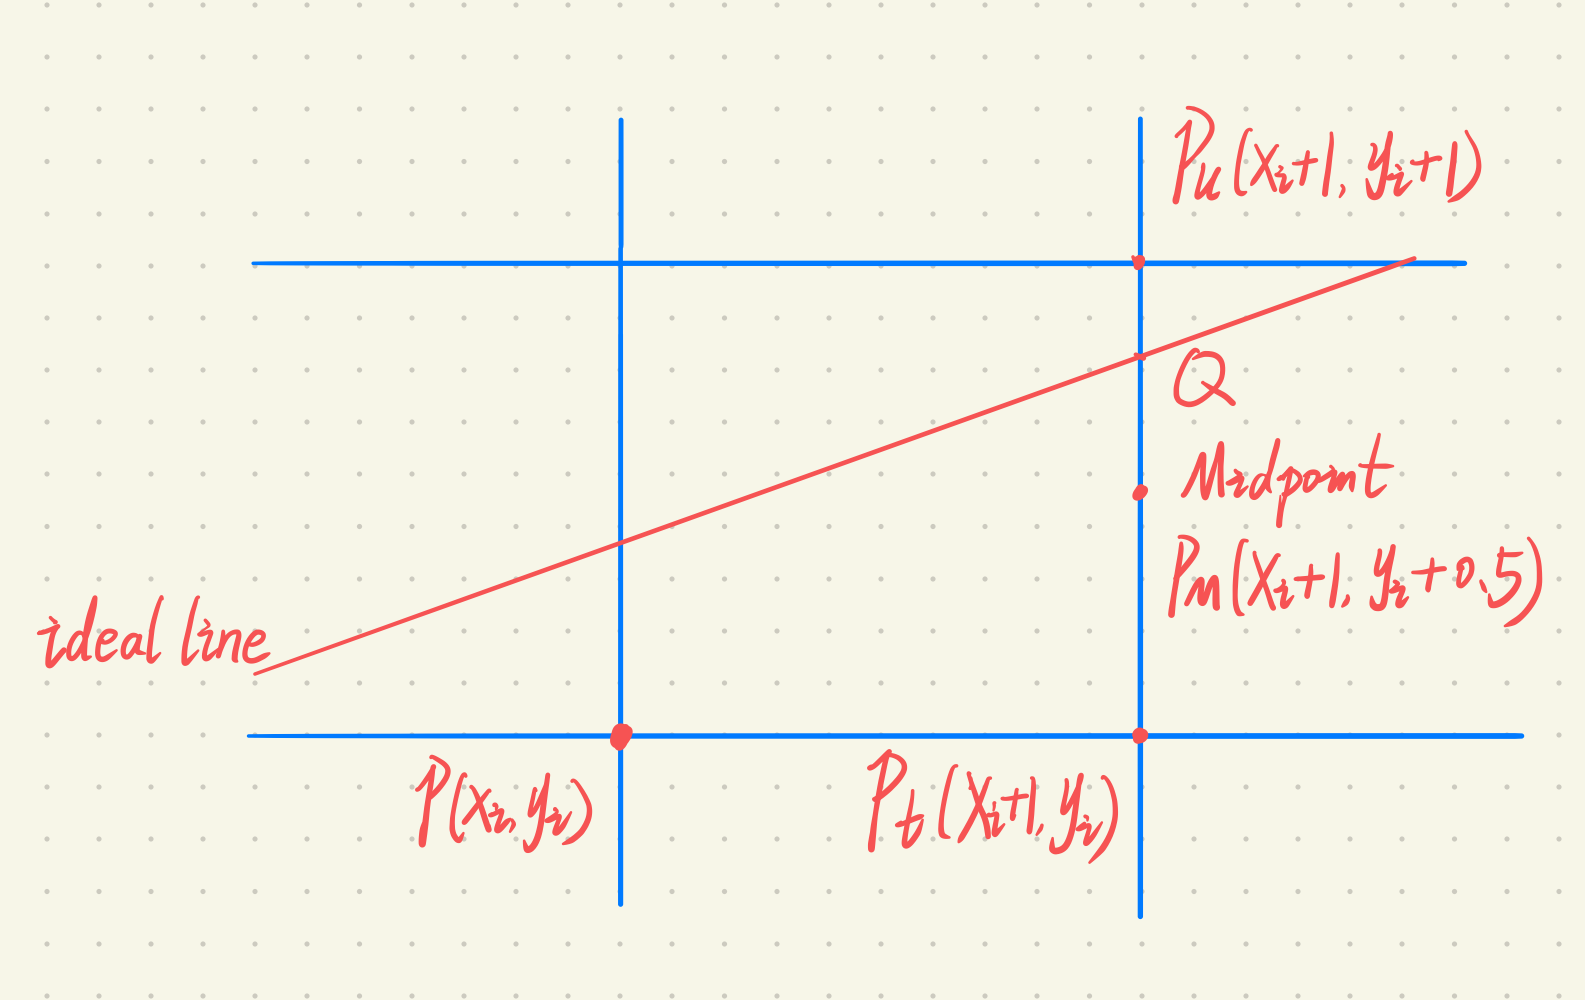 Pu(xi+1, yi+1)
Q
Midpoint
Pm(xi+1, yi+0.5)
ideal line
P(xi, yi)
Pt(xi+1, yi)